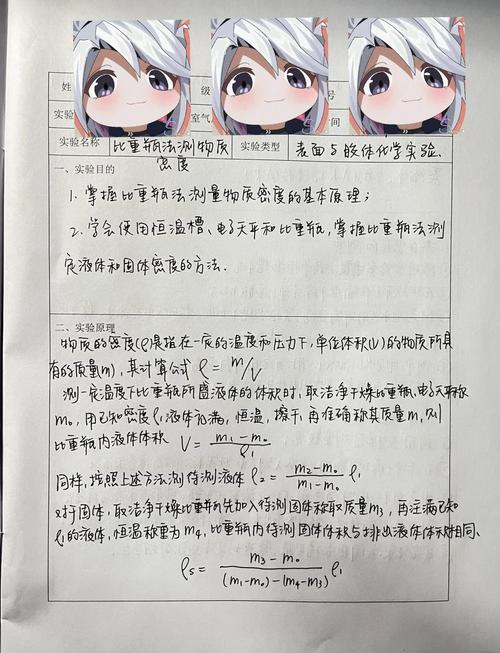 姓
级
号
实验
室气
时间
实验名称 比重瓶法测物质密度 实验类型 表面与胶体化学实验.
一、实验目的
1. 掌握比重瓶法测量物质密度的基本原理;
2. 学会使用恒温槽、电子天平和比重瓶,掌握比重瓶法测
定液体和固体密度的方法.
二、实验原理
物质的密度(ρ)是指在一定的温度和压力下,单位体积(V)的物质所具
有的质量(m),其计算公式 ρ = m/V
测一定温度下比重瓶所盛液体的体积时,取洁净干燥比重瓶,电子天平称
m₀,用已知密度ρ₁液体充满,恒温,擦干,再准确称其质量m₁则
比重瓶内液体体积 V = (m₁-m₀)/ρ₁
同样,按照上述方法测待测液体 ρ₂ = (m₂-m₀)/(m₁-m₀) ρ₁
对于固体,取洁净干燥比重瓶先加入待测固体称取质量m₃,再注满已知
ρ₁的液体,恒温称重为m₄,比重瓶内待测固体体积与排出液体体积相同.
ρₛ = (m₃-m₀)/((m₁-m₀)-(m₄-m₃)) ρ₁